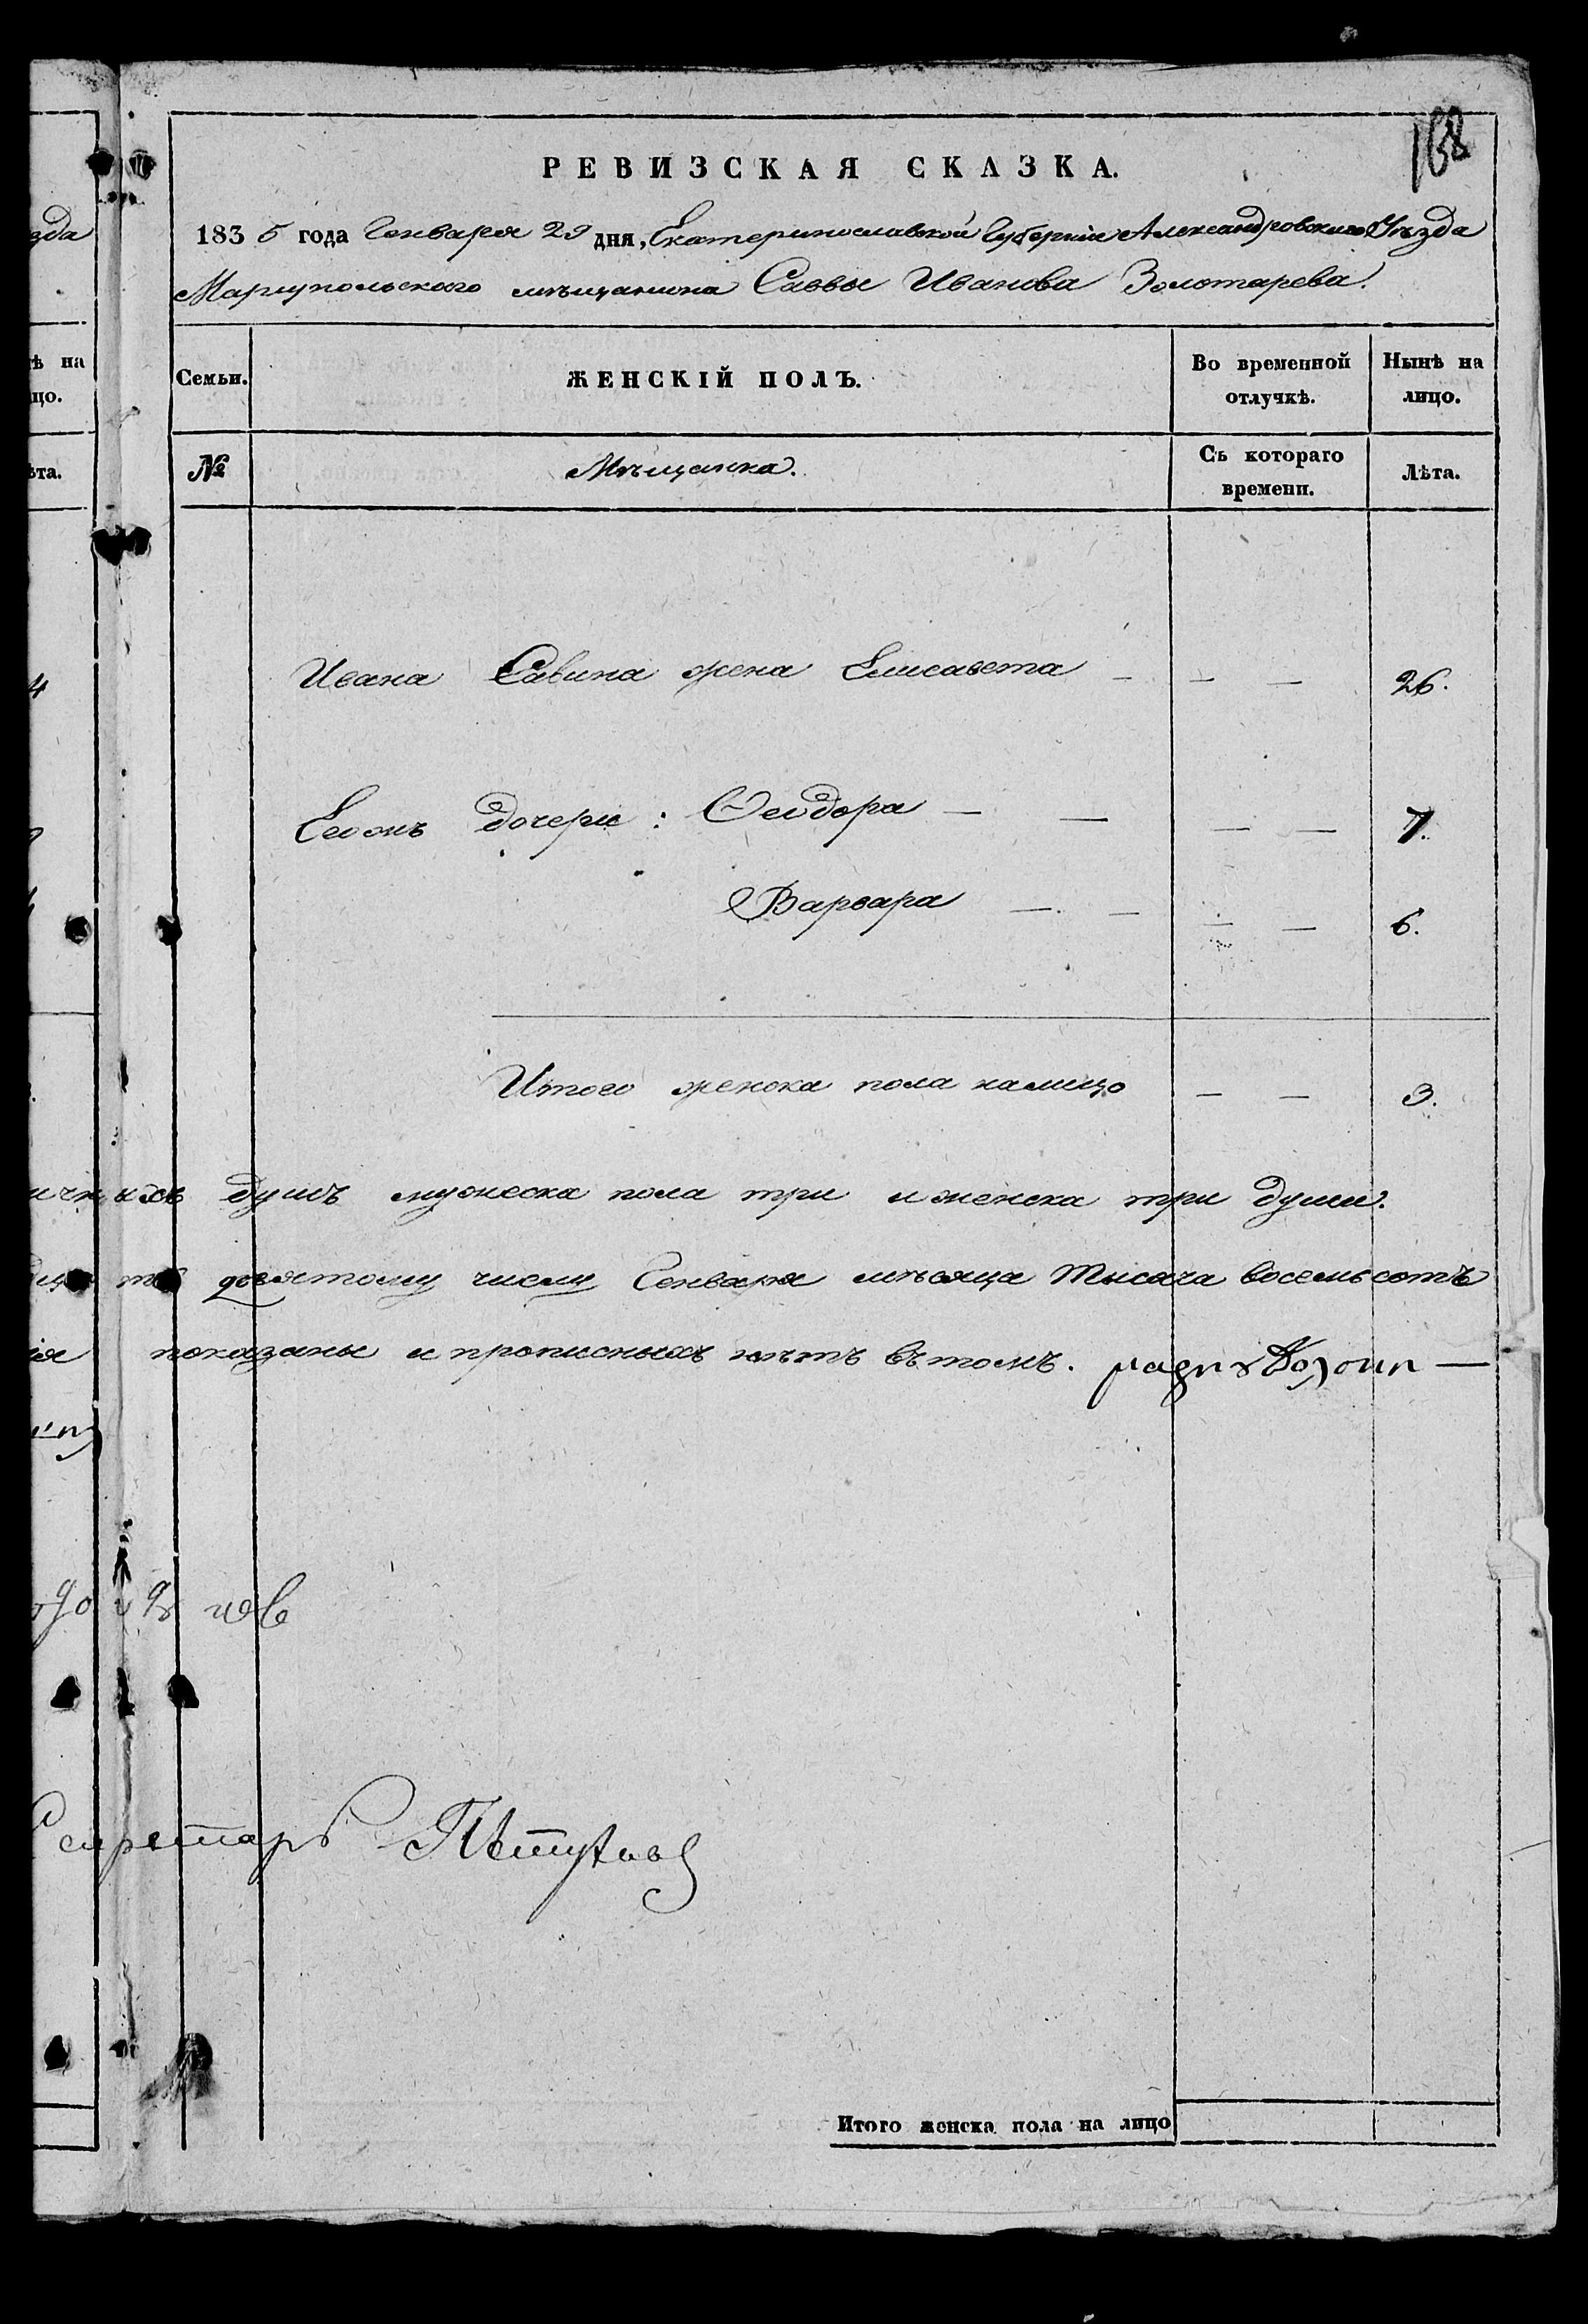 168
РЕВИЗСКАЯ СКАЗКА.
1835 года Генваря 29 дня, Екатеринославской Губерніи Александровскаго Уѣзда
Маріупольскаго мѣщанина Саввы Иванова Золотарева.
Семьи.
ЖЕНСКІЙ ПОЛЪ.
Во временной отлучкѣ.
Нынѣ на лицо.
№
Мѣщанка.
Съ котораго времени.
Лѣта.
Ивана Савина жена Елисавета — — — 26.
Ево жъ дочери: Феодора — — — — 7.
Варвара — — — — 6.
Итого женска пола налицо — — 3.
душъ мужеска пола три и женска три души.
девятому числу Генваря мѣсяца тысяча восемьсотъ
показаны и прописныхъ нѣтъ въ томъ.
Секретарь Пѣтуховъ
Итого женска пола на лицо